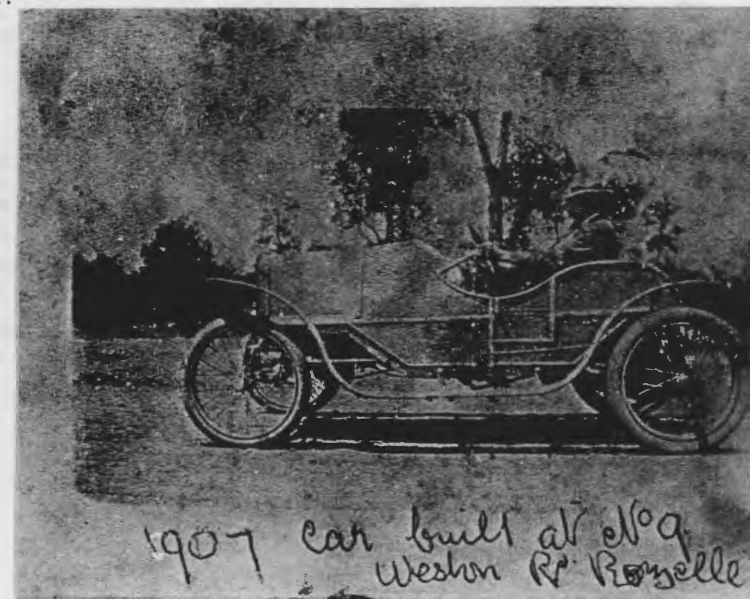 1907 Car built at No 9
Weston Rd Rozelle